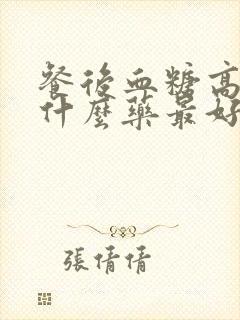 餐後血糖高
什麼藥最好
張倩倩